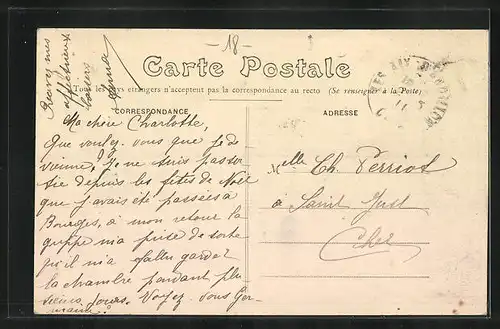 -18-
Carte Postale
Tous les pays étrangers n'acceptent pas la correspondance au recto (Se renseigner à la Poste)
CORRESPONDANCE
ADRESSE
Ma chère Charlotte,
Que voulez vous que je de
vienne, je ne suis pas sor
tie depuis les fêtes de Noël
que j'avais été passées à
Bourges, à mon retour la
grippe m'a prise de sorte
qu'il m'a fallu garder
la chambre pendant plu
sieurs jours. Voyez-vous Ger
maine?
Recevez mes
affectueux
baisers
Melle Ch. Perriot
à Saint Just
Cher